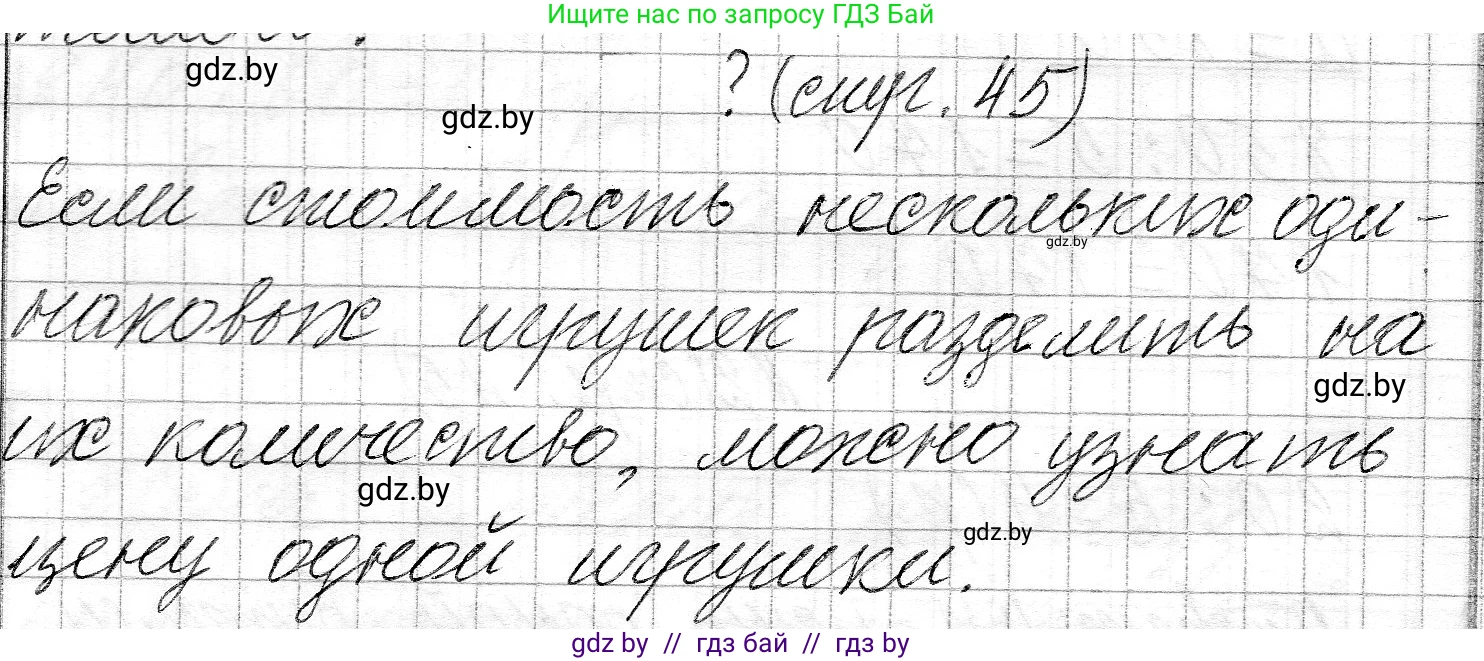 Ищите нас по запросу ГДЗ Бай
gdz.by
? (стр. 45)
gdz.by
Если стоимость нескольких оди-
gdz.by
наковых игрушек разделить на
gdz.by
их количество, можно узнать
gdz.by
gdz.by
цену одной игрушки.
gdz.by // гдз бай // гдз by